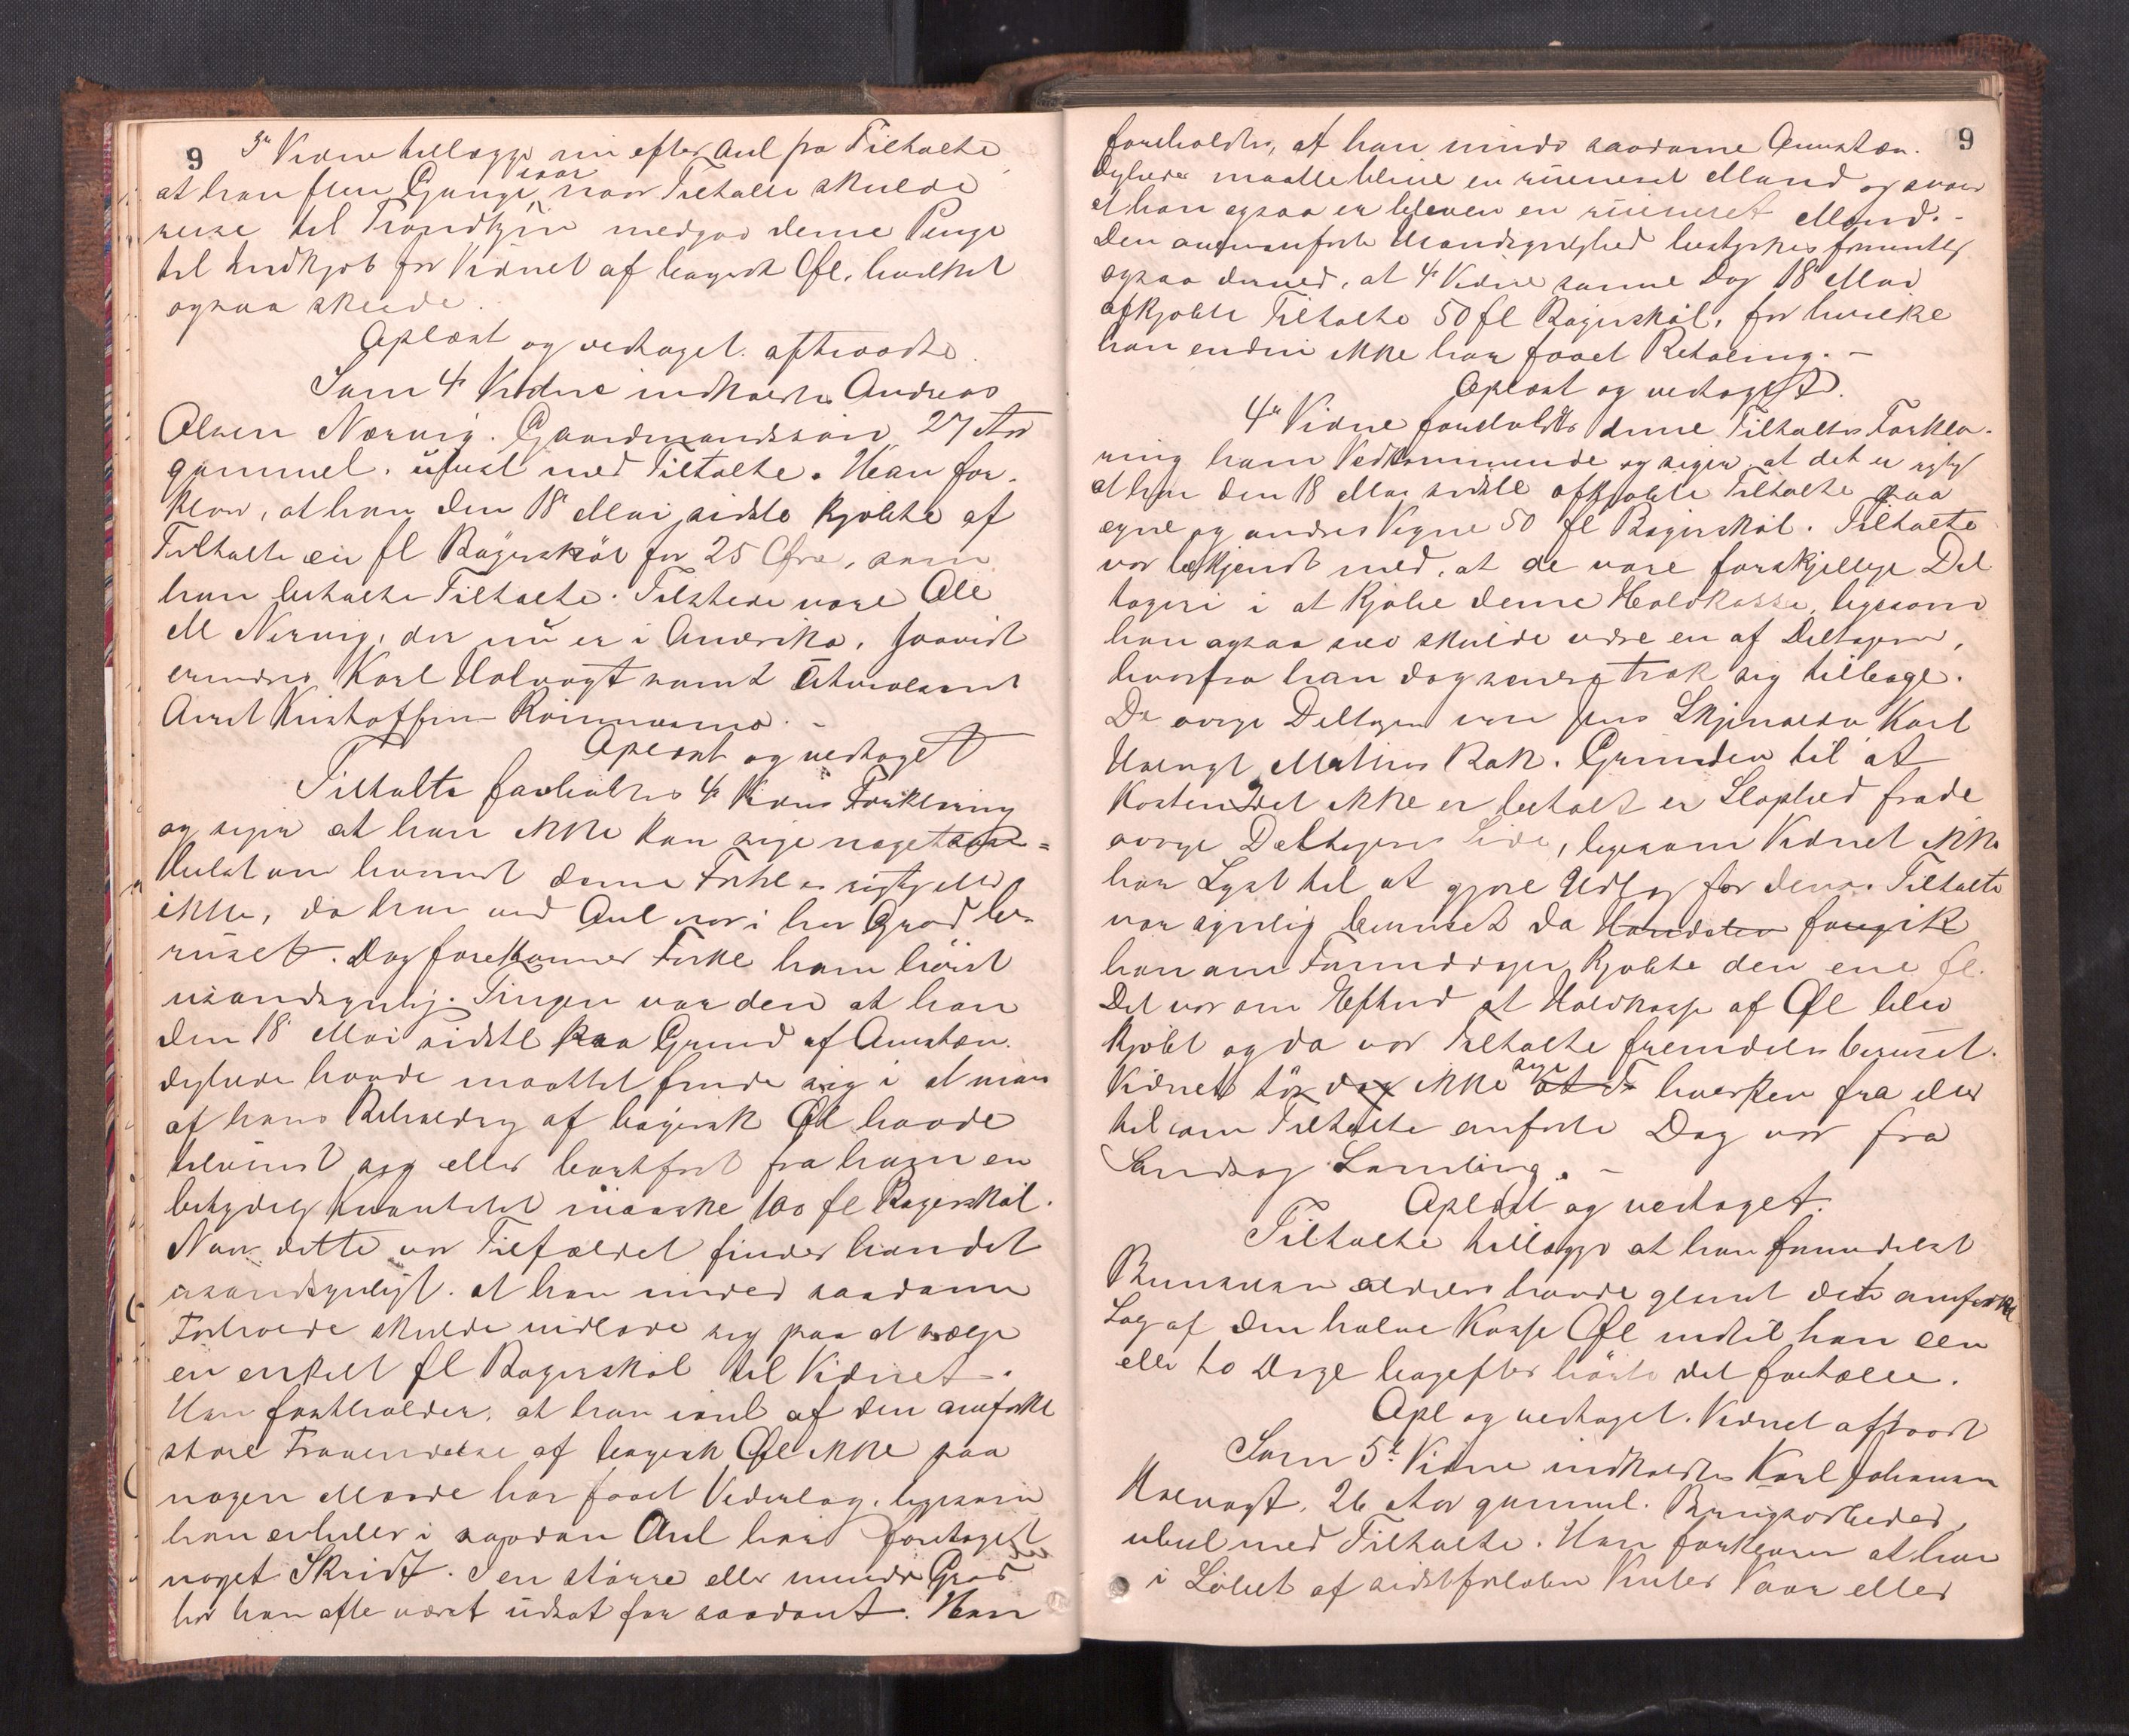 9
3die Vidne tillægger nu efter Anl fra Tiltalte
at han flere Gange iaar naar Tiltalte skulde
reise til Trondhjem medgav denne Penge
til Indkjøb for Vidnet af bayersk Øl, hvilket
ogsaa skeede.
Oplæst og vedtaget. aftraadte.
Som 4de Vidne indkaldtes Andreas
Olsen Nervig. Gaardmandssøn 27 Aar
gammel. ubesl med Tiltalte. Han for-
klarer, at han den 18 Mai sidste kjøbte af
Tiltalte en fl Bayerskøl for 25 Øre, som
han betalte Tiltalte. Tilstede vare Ole
M Nervig, der nu er i Amerika, saavidt
erindres Karl Holvagt samt
Arnt Kristoffersen
Oplæst og vedtaget
Tiltalte foreholdtes 4de Vidnes Forklaring
og siger at han ikke kan sige noget
om hvorvidt denne Forkl er rigtig eller
ikke, da han ved Anl var i høi Grad be-
ruset. Dog forekommer Forkl ham høist
usandsynlig. Tingen var den at han
den 18 Mai sidstl paa Grund af Omstæn-
dighederne havde maattet finde sig i at man
af hans Beholdning af bayersk Øl havde
tilvendt sig eller bortført fra ham en
betydelig Kvantitet maaske 100 fl Bayerskøl.
Naar dette var Tilfældet finder han det
usandsynligt. at han under saadanne
Forholde skulde indlade sig paa at sælge
en enkelt fl Bayerskøl til Vidnet.
Han fastholder, at han ved af den anførte
store Fravendelse af bayersk Øl ikke paa
nogen Maade har faaet Vederlag, ligesom
han enheller i saadan Anl har foretaget
noget Skridt. I en større eller mindre Grad
har han ofte været udsat for saadant. Han
9
foreholdtes, at han under saadanne Omstæn-
digheder maatte blive en ruineret Mand og svarer
at han ogsaa er bleven en ruineret Mand.-
Den ovenanførte Usandsynlighed bestyrkes formentlig
ogsaa derved, at 4de Vidne samme Dag 18 Mai
afkjøbte Tiltalte 50 fl Bayerskøl, for hvilke
han endnu ikke har faaet Betaling. -
Oplæst og vedtaget.
4de Vidne foreholdtes denne Tiltaltes Forkla-
ring ham Vedkommende og siger at det er rigtigt
at han den 18 Mai sidstl afkjøbte Tiltalte paa
egne og andres Vegne 50 fl Bayerskøl. Tiltalte
var bekjendt med, at de vare forskjellige Del-
tagere i at kjøbe denne Halvkasse, ligesom
han ogsaa selv skulde være en af Deltagerne,
hvorfra han dog senere trak sig tilbage.
De øvrige Deltagere vare Jens Skjervold Karl
Holvagt Mathias Rok. Grunden til at
Kosten Øl ikke er betalt er Slaphed fra de
øvrige Deltageres Side, ligesom Vidnet ikke
har Lyst til at gjøre Udlæg for dem. Tiltalte
var synlig beruset da Handelen foregik
han om Formiddagen kjøbte den ene fl.
Det var om Efterm at Halvkasse af Øl blev
kjøbt og da var Tiltalte fremdeles beruset.
Vidnet tør dog ikke sige at T hverken fra eller
til om Tiltalte anførte Dag var fra
Sands og Samling. -
Oplæst og vedtaget.
Tiltalte tillægger at han formedelst
Beruselsen aldeles havde glemt dette anførte
Salg af den halve Kasse Øl indtil han een
eller to Dage bagefter hørte det fortælle.
Opl og vedtaget. Vidnet aftraadt
Som 5te Vidne indkaldtes Karl Johansen
Holvagt, 26 Aar gammel. Brugsarbeider,
ubesl med Tiltalte. Han forklarer at han
i Løbet af sidstforløbne Vinter Vaar eller